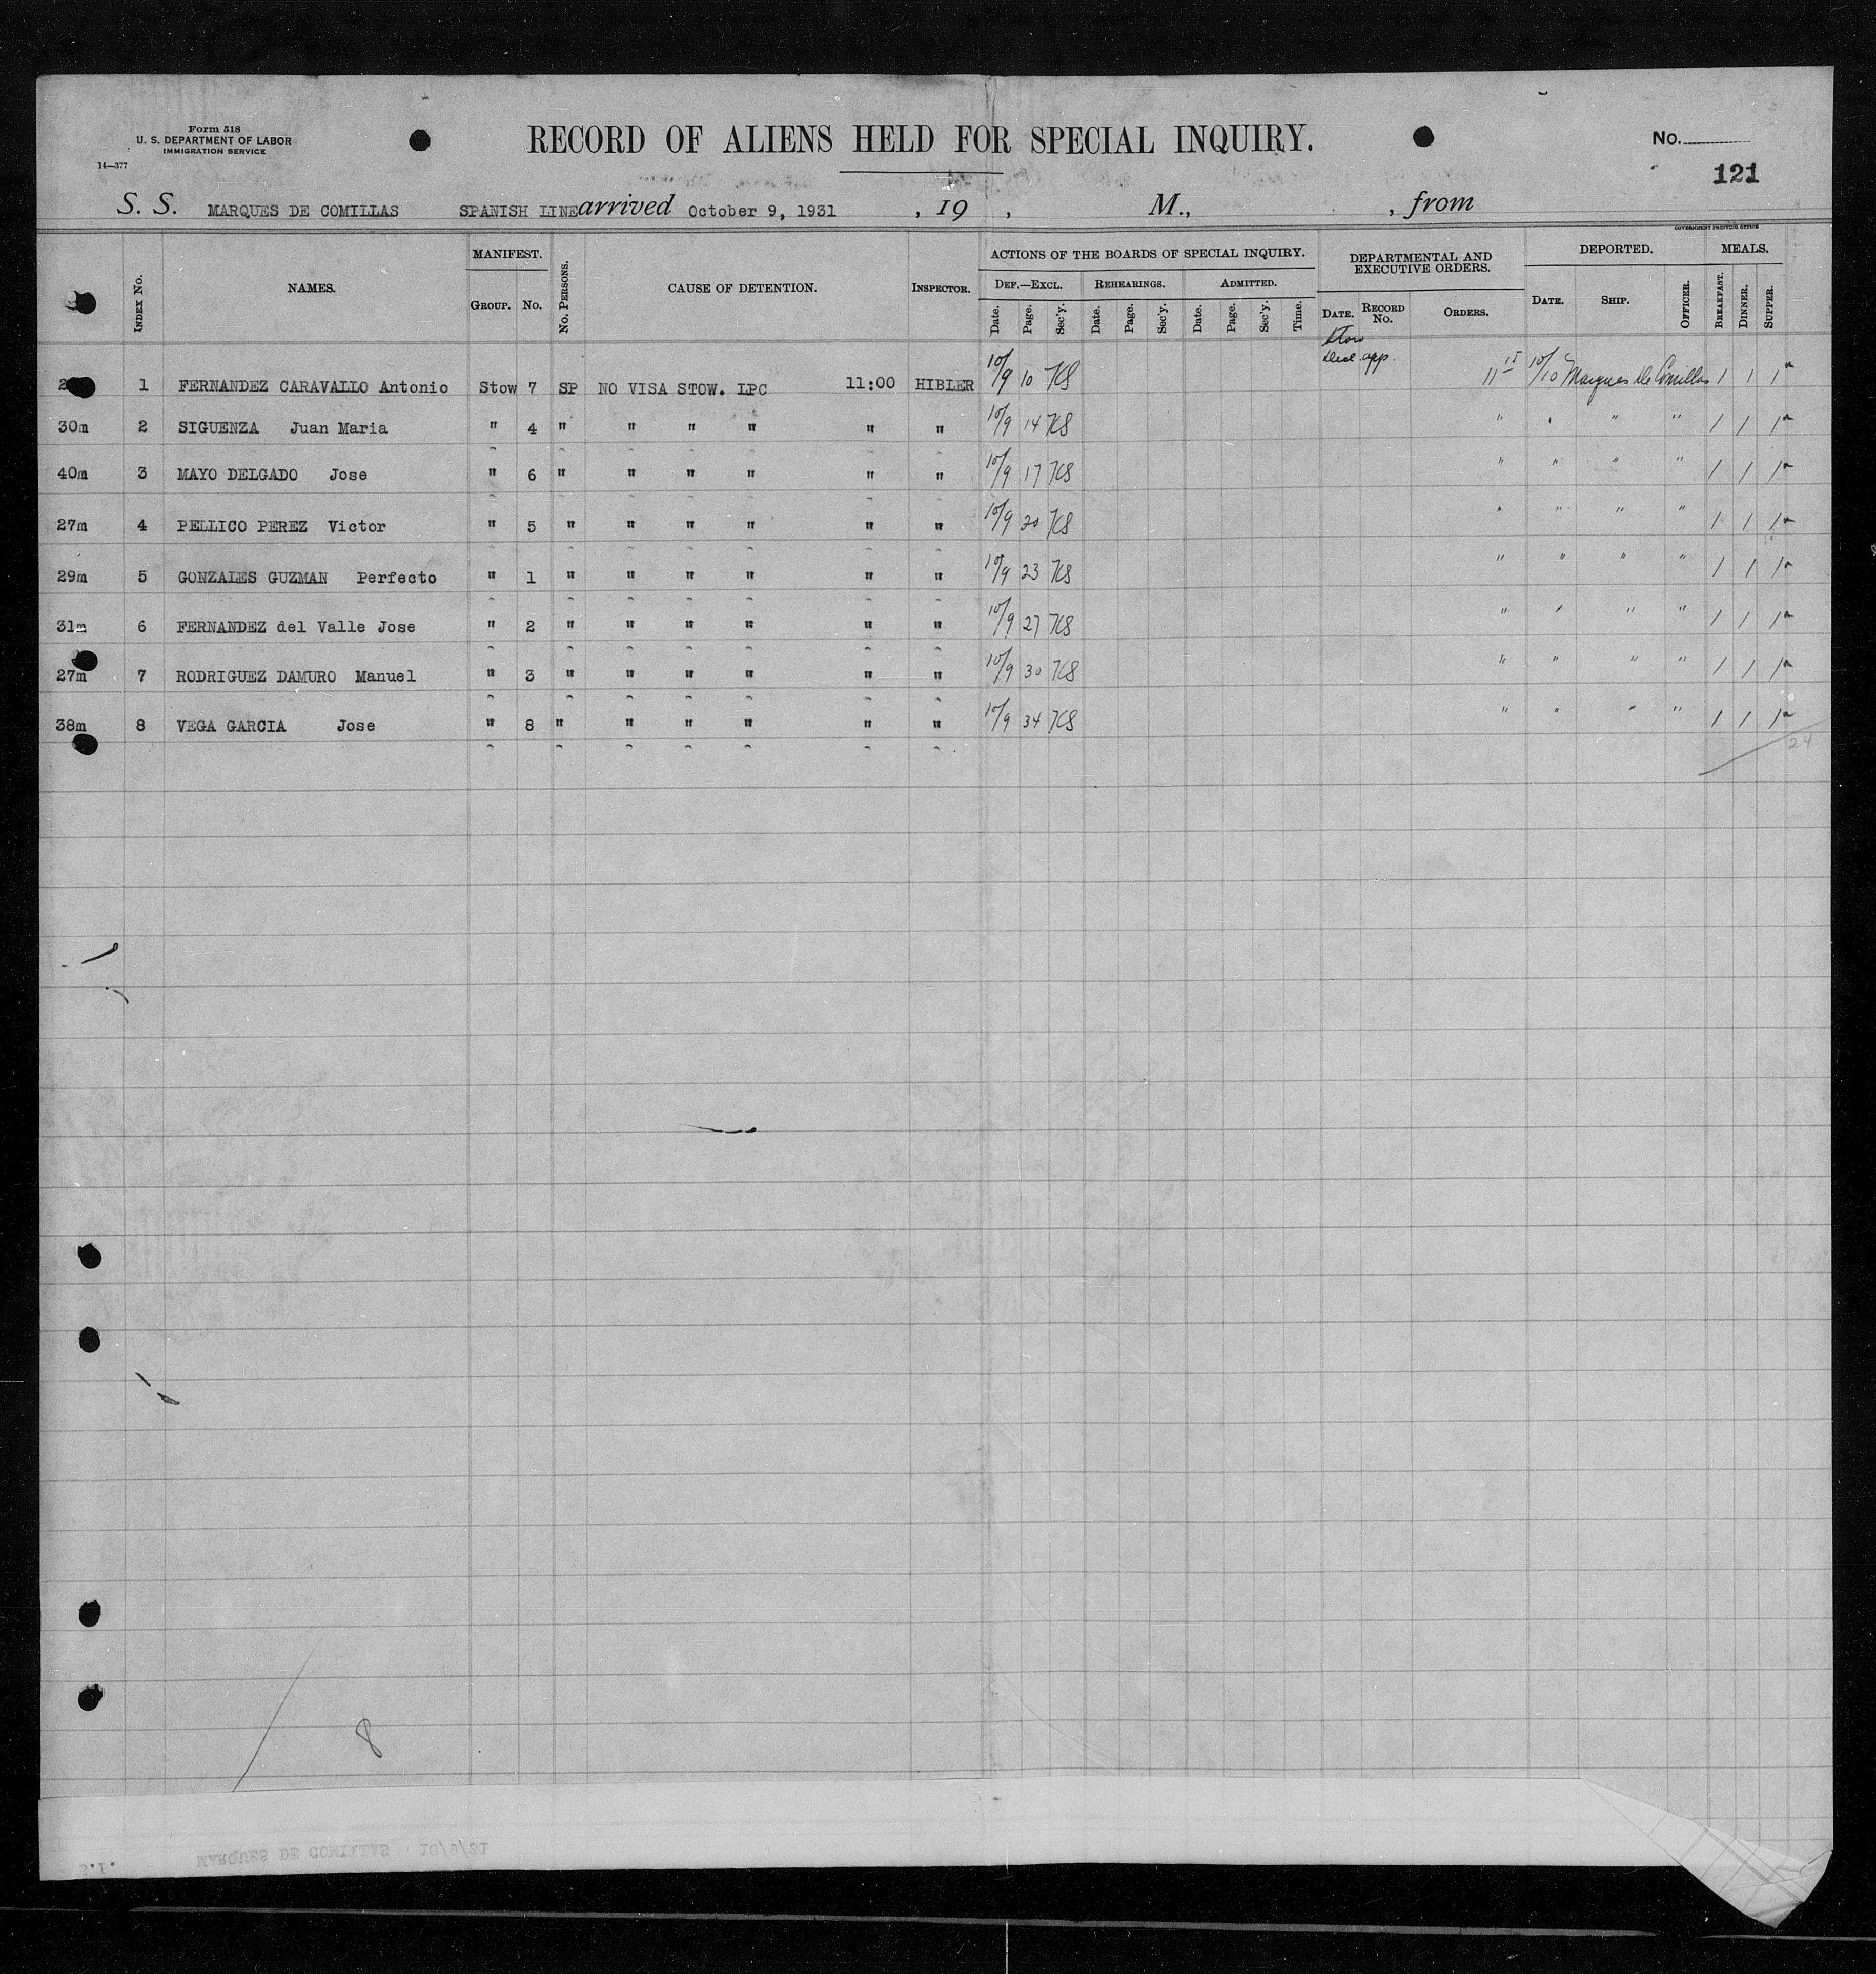 Form 518
U. S. DEPARTMENT OF LABOR
IMMIGRATION SERVICE
14—377
RECORD OF ALIENS HELD FOR SPECIAL INQUIRY.
No.
121
S. S. MARQUES DE COMILLAS SPANISH LINE arrived October 9, 1931 , 19 , M., , from
GOVERNMENT PRINTING OFFICE
INDEX NO. NAMES. MANIFEST. GROUP. NO. NO. PERSONS. CAUSE OF DETENTION. INSPECTOR. ACTIONS OF THE BOARDS OF SPECIAL INQUIRY. DEPARTMENTAL AND EXECUTIVE ORDERS. DEPORTED. MEALS.
DEF.—EXCL. REHEARINGS. ADMITTED.
Date. Page. Sec'y. Date. Page. Sec'y. Date. Page. Sec'y. Time. DATE. RECORD NO. ORDERS. DATE. SHIP. OFFICER. BREAKFAST. DINNER. SUPPER.
app.
1 FERNANDEZ CARAVALLO Antonio Stow 7 SP NO VISA STOW. LPC 11:00 HIBLER 10/9 10 KS 11 15 10/10 Marques de Comillas 1 1 1
30m 2 SIGUENZA Juan Maria " 4 " " " " " " 10/9 14 KS " " " " 1 1 1
40m 3 MAYO DELGADO Jose " 6 " " " " " " 10/9 17 KS " " " " 1 1 1
27m 4 PELLICO PEREZ Victor " 5 " " " " " " 10/9 20 KS " " " " 1 1 1
29m 5 GONZALES GUZMAN Perfecto " 1 " " " " " " 10/9 23 KS " " " " 1 1 1
31m 6 FERNANDEZ del Valle Jose " 2 " " " " " " 10/9 27 KS " " " " 1 1 1
27m 7 RODRIGUEZ DAMURO Manuel " 3 " " " " " " 10/9 30 KS " " " " 1 1 1
38m 8 VEGA GARCIA Jose " 8 " " " " " " 10/9 34 KS " " " " 1 1 1
24
8
S.I. MARQUES DE COMILLAS 10/9/31